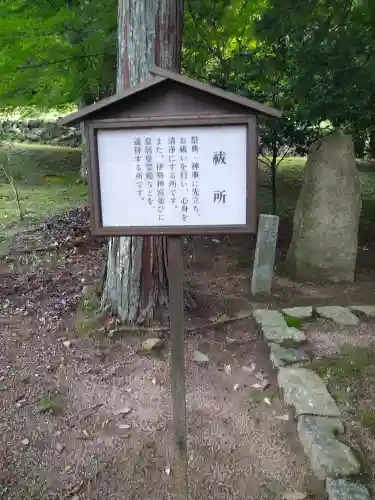 祓所
祭典、神事に先立ち、
お祓いを行い、心身を
清浄にする所です。
また、伊勢神宮並びに
皇居皇霊殿などを、
遙拝する所です。